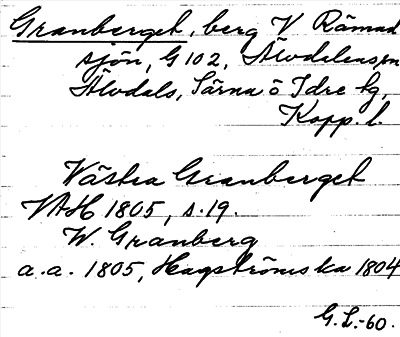 Granberget, berg V Rämad
sjön, G 102, Älvdalens sn
Älvdals, Särna o Idre tg,
Kopp. l.
Västra Granberget
VAH 1805, s. 19.
W. Granberg
a.a. 1805, Hagströms ka 1804
G.L.-60.